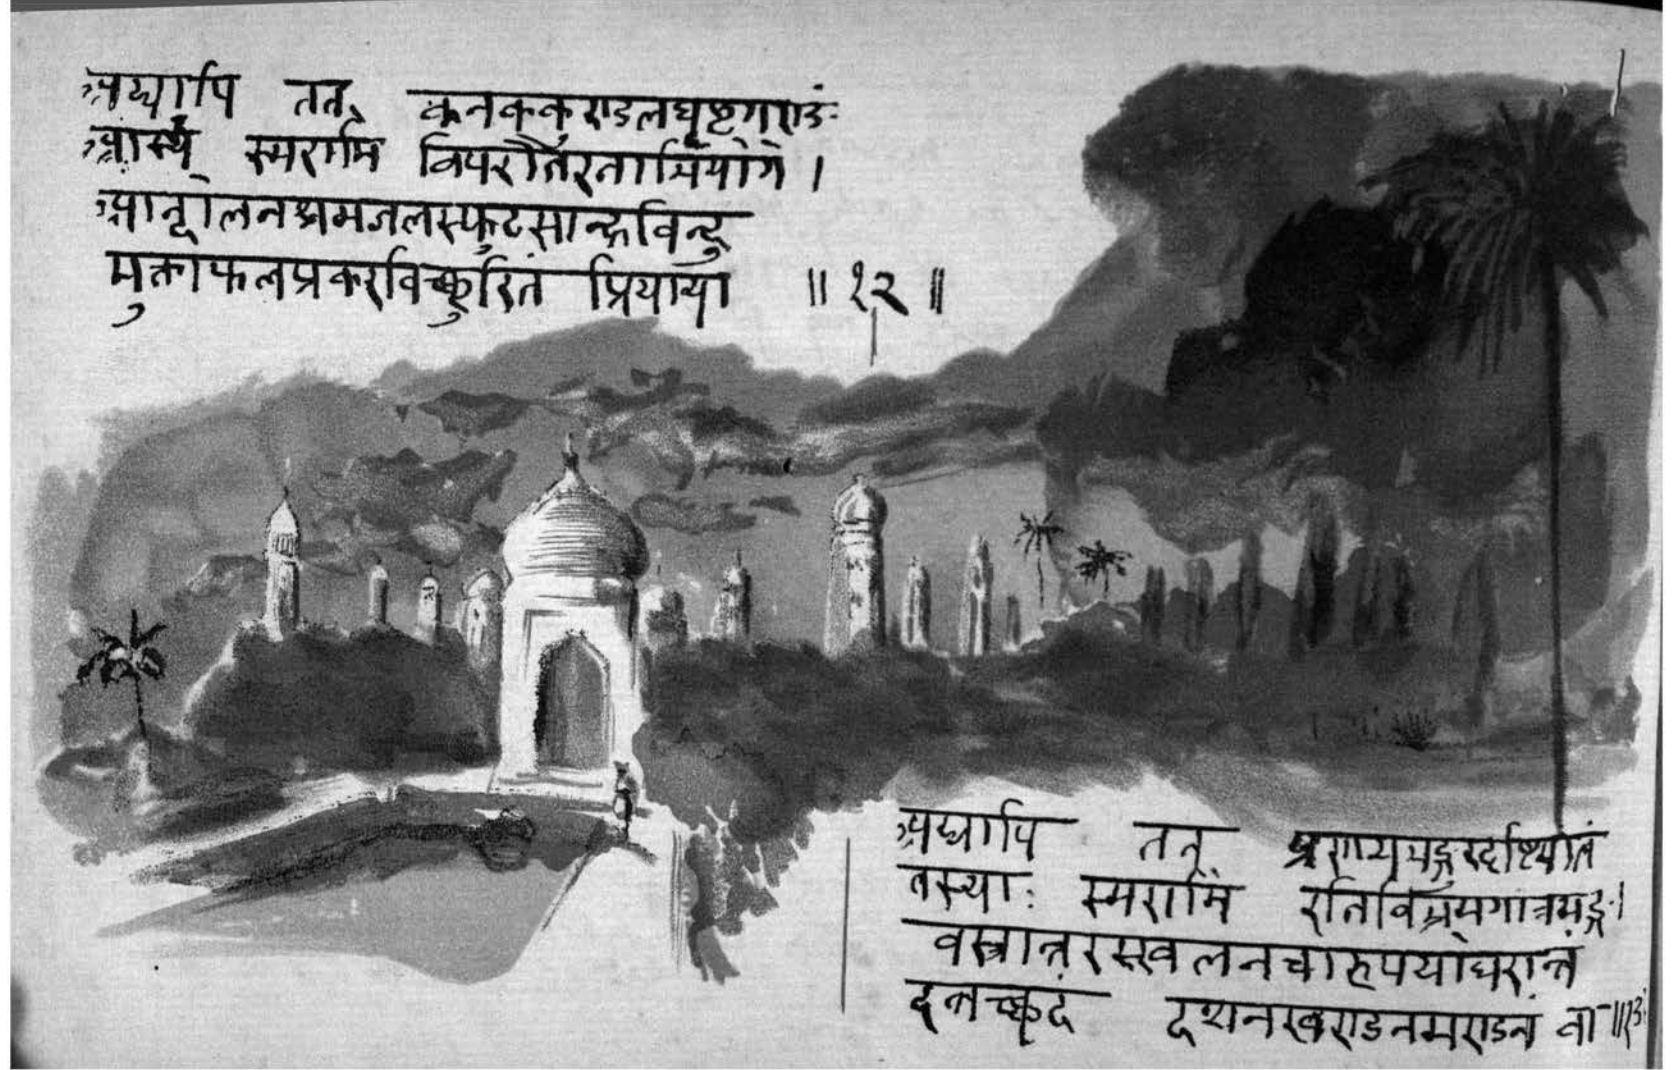 अद्यापि तत् कनककुण्डलघृष्टगण्डं
आस्यं स्मरामि विपरीतरताभियोगे ।
आन्दोलनश्रमजलस्फुटसान्द्रविन्दु
मुक्ताफलप्रकरविच्छुरितं प्रियाया ॥ १२ ॥
अद्यापि तत् प्रणयभङ्गुरदृष्टिपातं
तस्याः स्मरामि रतिविभ्रमगात्रभङ्ग ।
वस्त्रान्तरस्खलनचारुपयोधरान्तं
दन्तच्छदं दशनखण्डनमण्डनं वा ॥१३॥